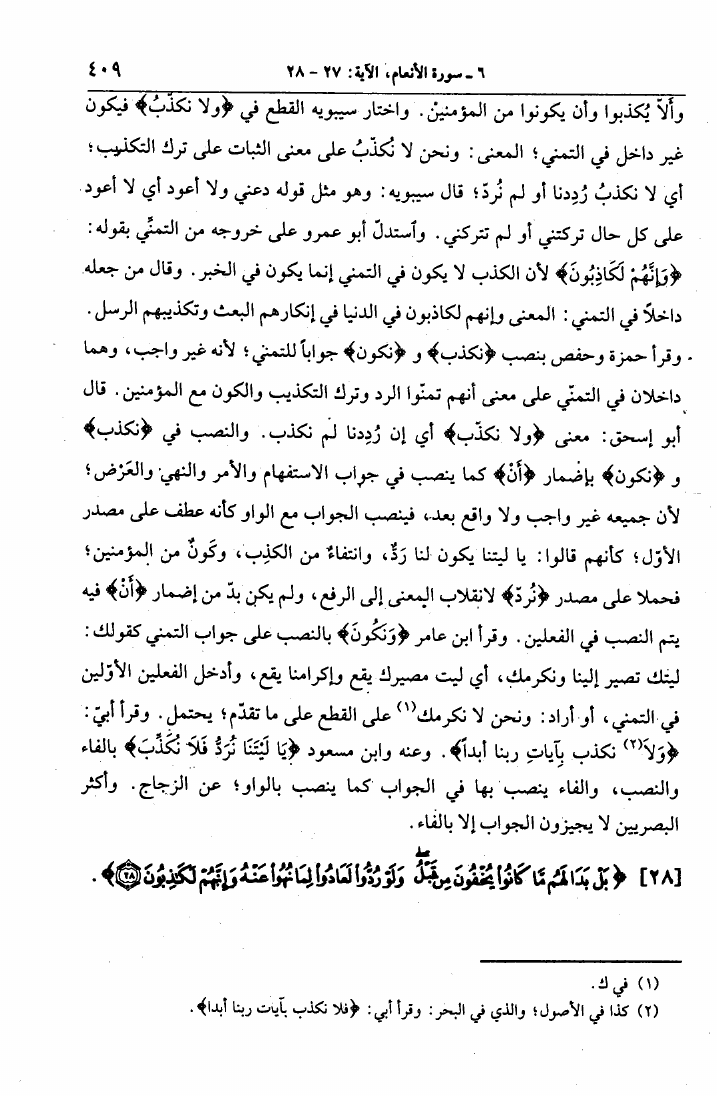 ٦ ـ سورة الأنعام، الآية: ٢٧ - ٢٨ ٤٠٩
وَألاّ يُكذبوا وأن يكونوا من المؤمنين. واختار سيبويه القطع في ﴿ولا نكذّبُ﴾ فيكون
غير داخل في التمني؛ المعنى: ونحن لا نُكذّبُ على معنى الثبات على ترك التكذيب؛
أي لا نكذبُ رُدِدنا أو لم نُردّ؛ قال سيبويه: وهو مثل قوله دعني ولا أعود أي لا أعود
على كل حال تركتني أو لم تتركني. وٱستدلّ أبو عمرو على خروجه من التمنّي بقوله:
﴿وَإِنَّهُمْ لَكَاذِبُونَ﴾ لأن الكذب لا يكون في التمني إنما يكون في الخبر. وقال من جعله
داخلاً في التمني: المعنى وإنهم لكاذبون في الدنيا في إنكارهم البعث وتكذيبهم الرسل.
وقرأ حمزة وحفص بنصب ﴿نكذب﴾ و ﴿نكون﴾ جواباً للتمني؛ لأنه غير واجب، وهما
داخلان في التمنّي على معنى أنهم تمنّوا الرد وترك التكذيب والكون مع المؤمنين. قال
أبو إسحق: معنى ﴿ولا نكذّب﴾ أي إن رُدِدنا لم نكذب. والنصب في ﴿نكذب﴾
و ﴿نكون﴾ بإضمار ﴿أنْ﴾ كما ينصب في جواب الاستفهام والأمر والنهي والعَرْض؛
لأن جميعه غير واجب ولا واقع بعد، فينصب الجواب مع الواو كأنه عطف على مصدر
الأوّل؛ كأنهم قالوا: يا ليتنا يكون لنا رَدٌّ، وانتفاءٌ من الكذِب، وكَونٌ من المؤمنين؛
فحملا على مصدر ﴿نُردّ﴾ لانقلاب المعنى إلى الرفع، ولم يكن بدّ من إضمار ﴿أنْ﴾ فيه
يتم النصب في الفعلين. وقرأ ابن عامر ﴿وَنَكُونَ﴾ بالنصب على جواب التمني كقولك:
ليتك تصير إلينا ونكرمك، أي ليت مصيرك يقع وإكرامنا يقع، وأدخل الفعلين الأوّلين
في التمني، أو أراد: ونحن لا نكرمك(١) على القطع على ما تقدّم؛ يحتمل. وقرأ أبيّ:
﴿وَلاَ(٢) نكذب بِآياتِ ربنا أبداً﴾. وعنه وابن مسعود ﴿يَا لَيْتَنَا نُرَدُّ فَلاَ نُكَذِّبَ﴾ بالفاء
والنصب، والفاء ينصب بها في الجواب كما ينصب بالواو؛ عن الزجاج. وأكثر
البصريين لا يجيزون الجواب إلا بالفاء.
[٢٨] ﴿بَلْ بَدَا لَهُم مَّا كَانُوا يُخْفُونَ مِن قَبْلُ وَلَوْ رُدُّوا لَعَادُوا لِمَا نُهُوا عَنْهُ وَإِنَّهُمْ لَكَٰذِبُونَ ٢٨﴾.
(١) في ك.
(٢) كذا في الأصول؛ والذي في البحر: وقرأ أبي: ﴿فلا نكذب بآيات ربنا أبدا﴾.